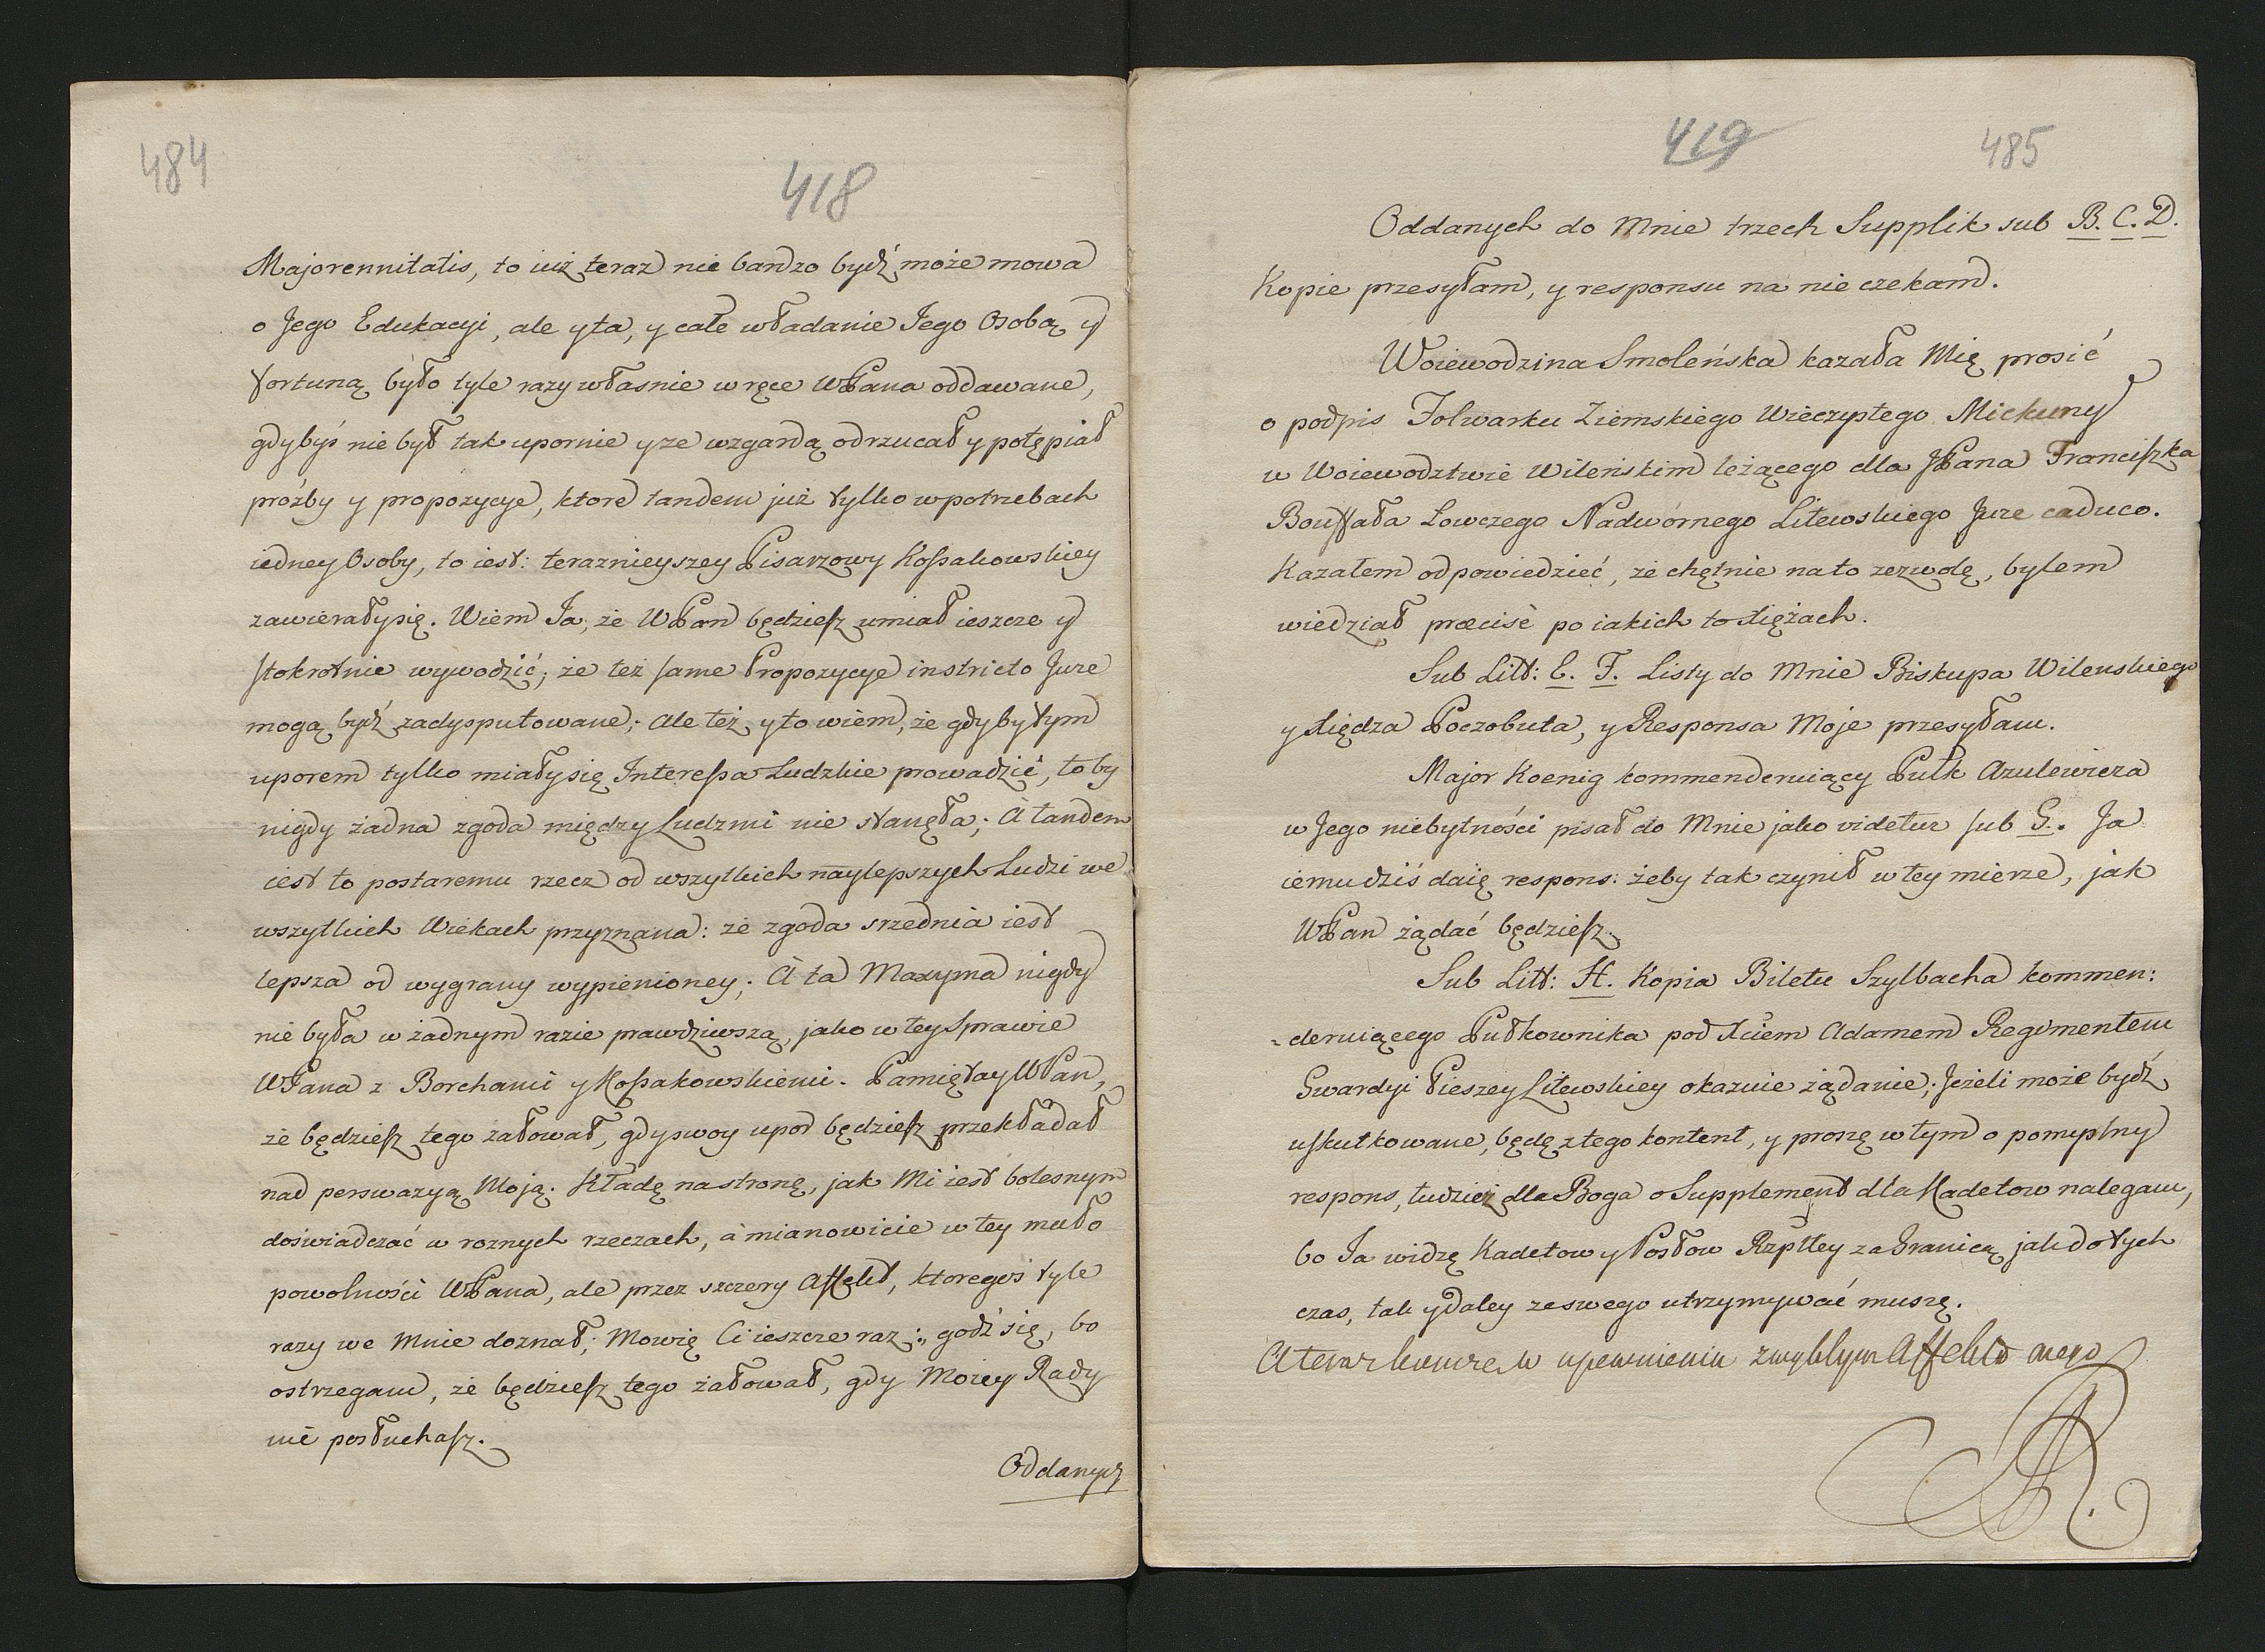 484
418
Majorennitatis, to iuż teraz nie bardzo bydź może mowa
o Jego Edukacyi, ale y ta, y całe władanie Jego Osobą y
fortuną było tyle razy własnie w ręce WPana oddawane,
gdybyś nie był tak upornie y ze wzgardą odrzucał y potępiał
próźby y propozycye, ktore tandem już tylko w potrzebach
iedney Osoby, to iest: teraznieyszey Pisarzowy Koſsakowskiey
zawierały się. Wiem Ja, że WPan będzieſz umiał ieszcze y
ſtokrotnie wywodzić, że też ſame Propozycye in stricto Jure
mogą bydź zadysputowane; Ale też y to wiem, że gdyby tym
uporem tylko miały się Intereſsa Ludzkie prowadzić, to by
nigdy żadna zgoda między Ludzmi nie stanęła; A tandem
iest to postaremu rzecz od wszytkich naylepszych Ludzi we
wszytkich Wiekach przyznana: że zgoda srzednia iest
lepsza od wygrany wypienioney; A ta Maxyma nigdy
nie była w żadnym razie prawdziwszą, jako w tey Sprawie
WPana z Borchami y Koſsakowskiemi. Pamiętay WPan,
że będzieſz tego żałował, gdy swoy upor będzieſz przekładał
nad perswazyą Moją. Kładę na stronę, jak Mi iest bolesnym
doświadczać w roznych rzeczach, à mianowicie w tey mało
powolności WPana, ale przez szczery Affekt, ktoregoś tyle
razy we Mnie doznał; Mowię Ci ieszcze raz: „ godź się, bo
ostrzegam, że będzieſz tego żałował, gdy Moiey Rady
nie posłuchaſz.
Oddanych
419
485
Oddanych do Mnie trzech Supplik sub B. C. D.
Kopie przesyłam, y responsu na nie czekam.
Woiewodzina Smoleńska kazała Mię prosić
o podpis Folwarku Ziemskiego Wieczystego Mickuny
w Woiewodztwie Wileńskim leżącego dla JPana Franciſzka
Bouffała Łowczego Nadwornego Litewskiego Jure caduco.
Kazałem odpowiedzieć, że chętnie na to zezwolę, bylem
wiedział præcisè po iakich to Xiężach.
Sub Litt: E. F. Listy do Mnie Biskupa Wilenskiego
y Xiędza Poczobuta, y Responsa Moje przesyłam.
Major Koenig kommenderuiący Pułk Azulewicza
w Jego niebytności pisał do Mnie jako videtur ſub G. Ja
iemu dziś daię respons: żeby tak czynił w tey mierze, jak
WPan żądać będzieſz.
Sub Litt: H. Kopia Biletu Szylbacha kommen:
-deruiącego Pułkownika pod Xciem Adamem Regimentem
Gwardyi Pieszey Litewskiey okazuie żądanie; Jeżeli może bydź
uſkutkowane, będę z tego kontent, y proszę w tym o pomyślny
respons, tudzież dla Boga o Supplement dla Kadetow nalegam,
bo Ja widzę Kadetow y Posłow Rzpltey za Granicą, jak do tych
czas, tak y daley ze swego utrzymywać muszę.
A teraz koncze w upewnieniu zwykłym Affektu mego
SAR.